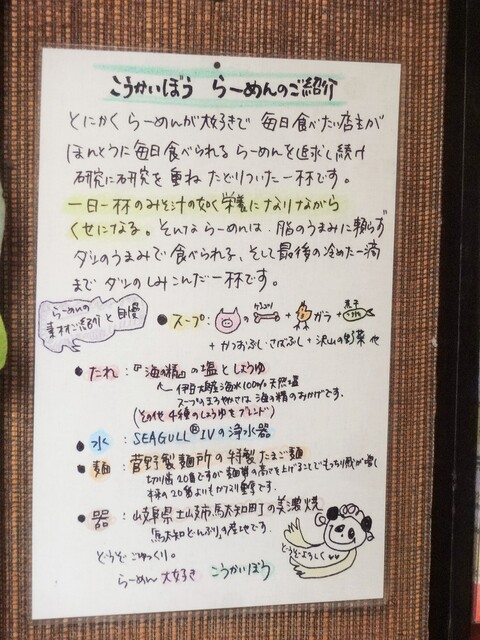 こうかいぼう らーめんのご紹介
とにかく らーめんが大好きで 毎日食べたい店主が
ほんとうに毎日食べられる らーめんを追求し続け
研究に研究を重ね たどりついた一杯です。
一日一杯のみそ汁の如く栄養になりながら
くせになる。そんならーめんは、脂のうまみに頼らず
ダシのうまみで食べられる、そして最後の冷めた一滴
まで ダシのしみこんだ一杯です。
らーめんの
素材ご紹介と自慢
●スープ: の げんこつ + ガラ + 煮干
+ かつおぶし・さばぶし + 沢山の野菜 他
●たれ:『海の精』の塩としょうゆ
伊豆大島産海水100%天然塩
スープのまろやかさは 海の精のおかげです。
(その他 4種のしょうゆをブレンド)
●水:SEAGULL®IVの浄水器
●麺:菅野製麺所の特製たまご麺
切り歯20番ですが麺帯の高さを上げることでもっちり感が増し
本来の20番よりもかなり重厚です。
●器:岐阜県土岐市駄知町の美濃焼
「駄知どんぶり」の産地です。
どうぞごゆっくり。
らーめん 大好き こうかいぼう
どうぞよろしく